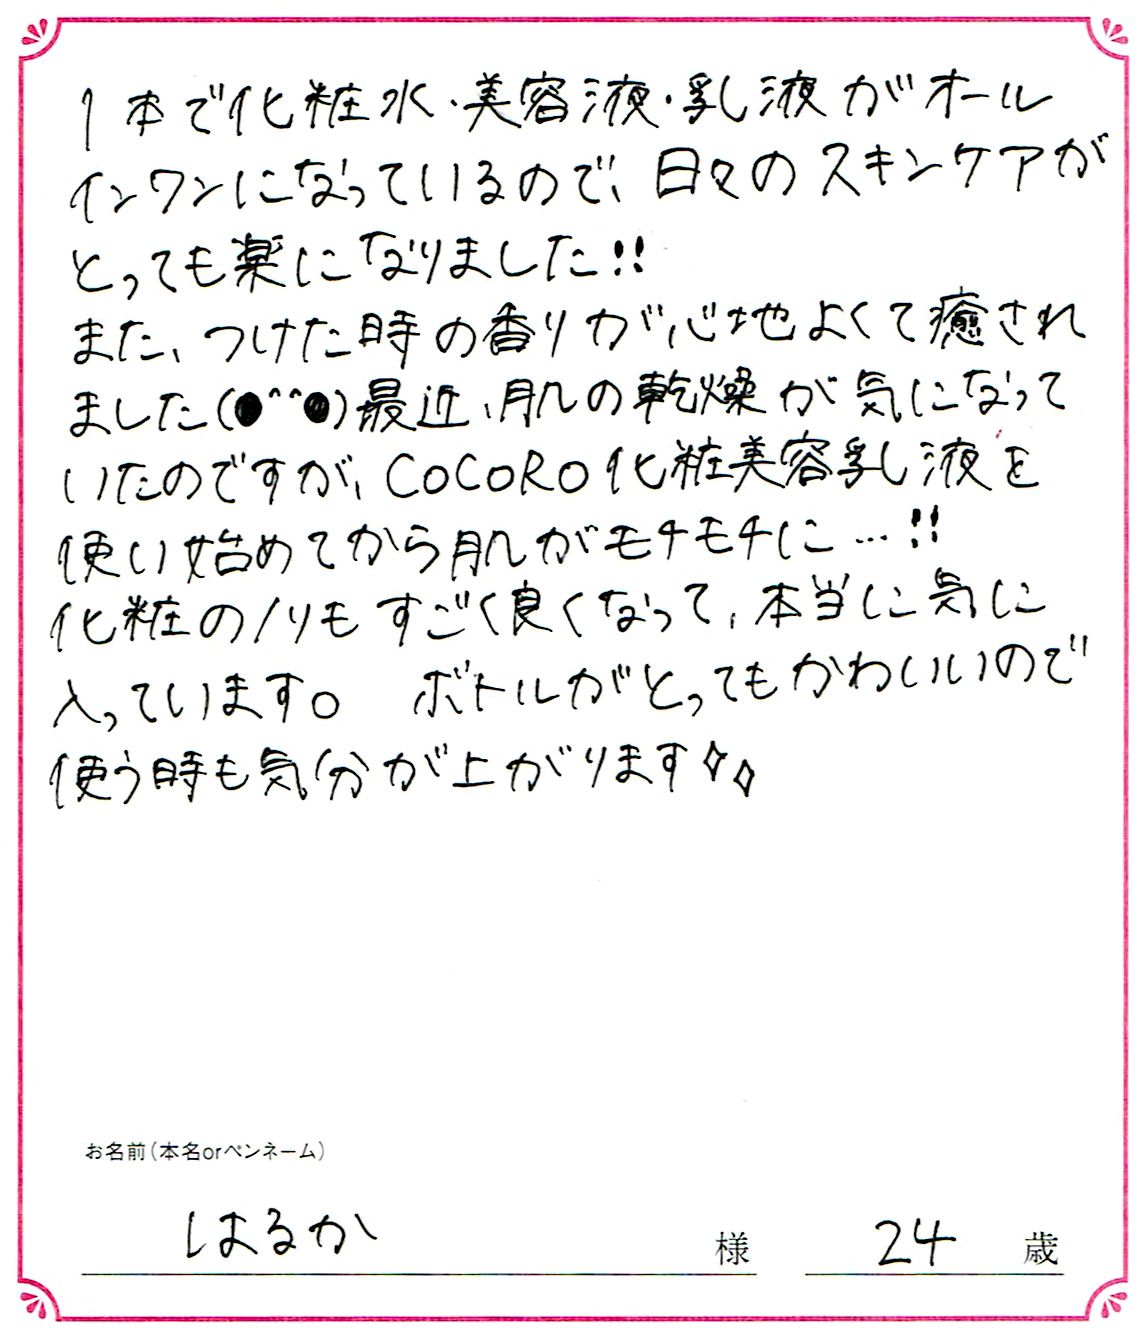 1本で化粧水・美容液・乳液がオール
インワンになっているので、日々のスキンケアが
とっても楽になりました!!
また、つけた時の香りが心地よくて癒され
ました(●^^●)最近、肌の乾燥が気になって
いたのですが、COCORO化粧美容乳液を
使い始めてから肌がモチモチに…!!
化粧のノリもすごく良くなって、本当に気に
入っています。 ボトルがとってもかわいいので
使う時も気分が上がります✧✧
お名前(本名orペンネーム)
はるか 様 24 歳